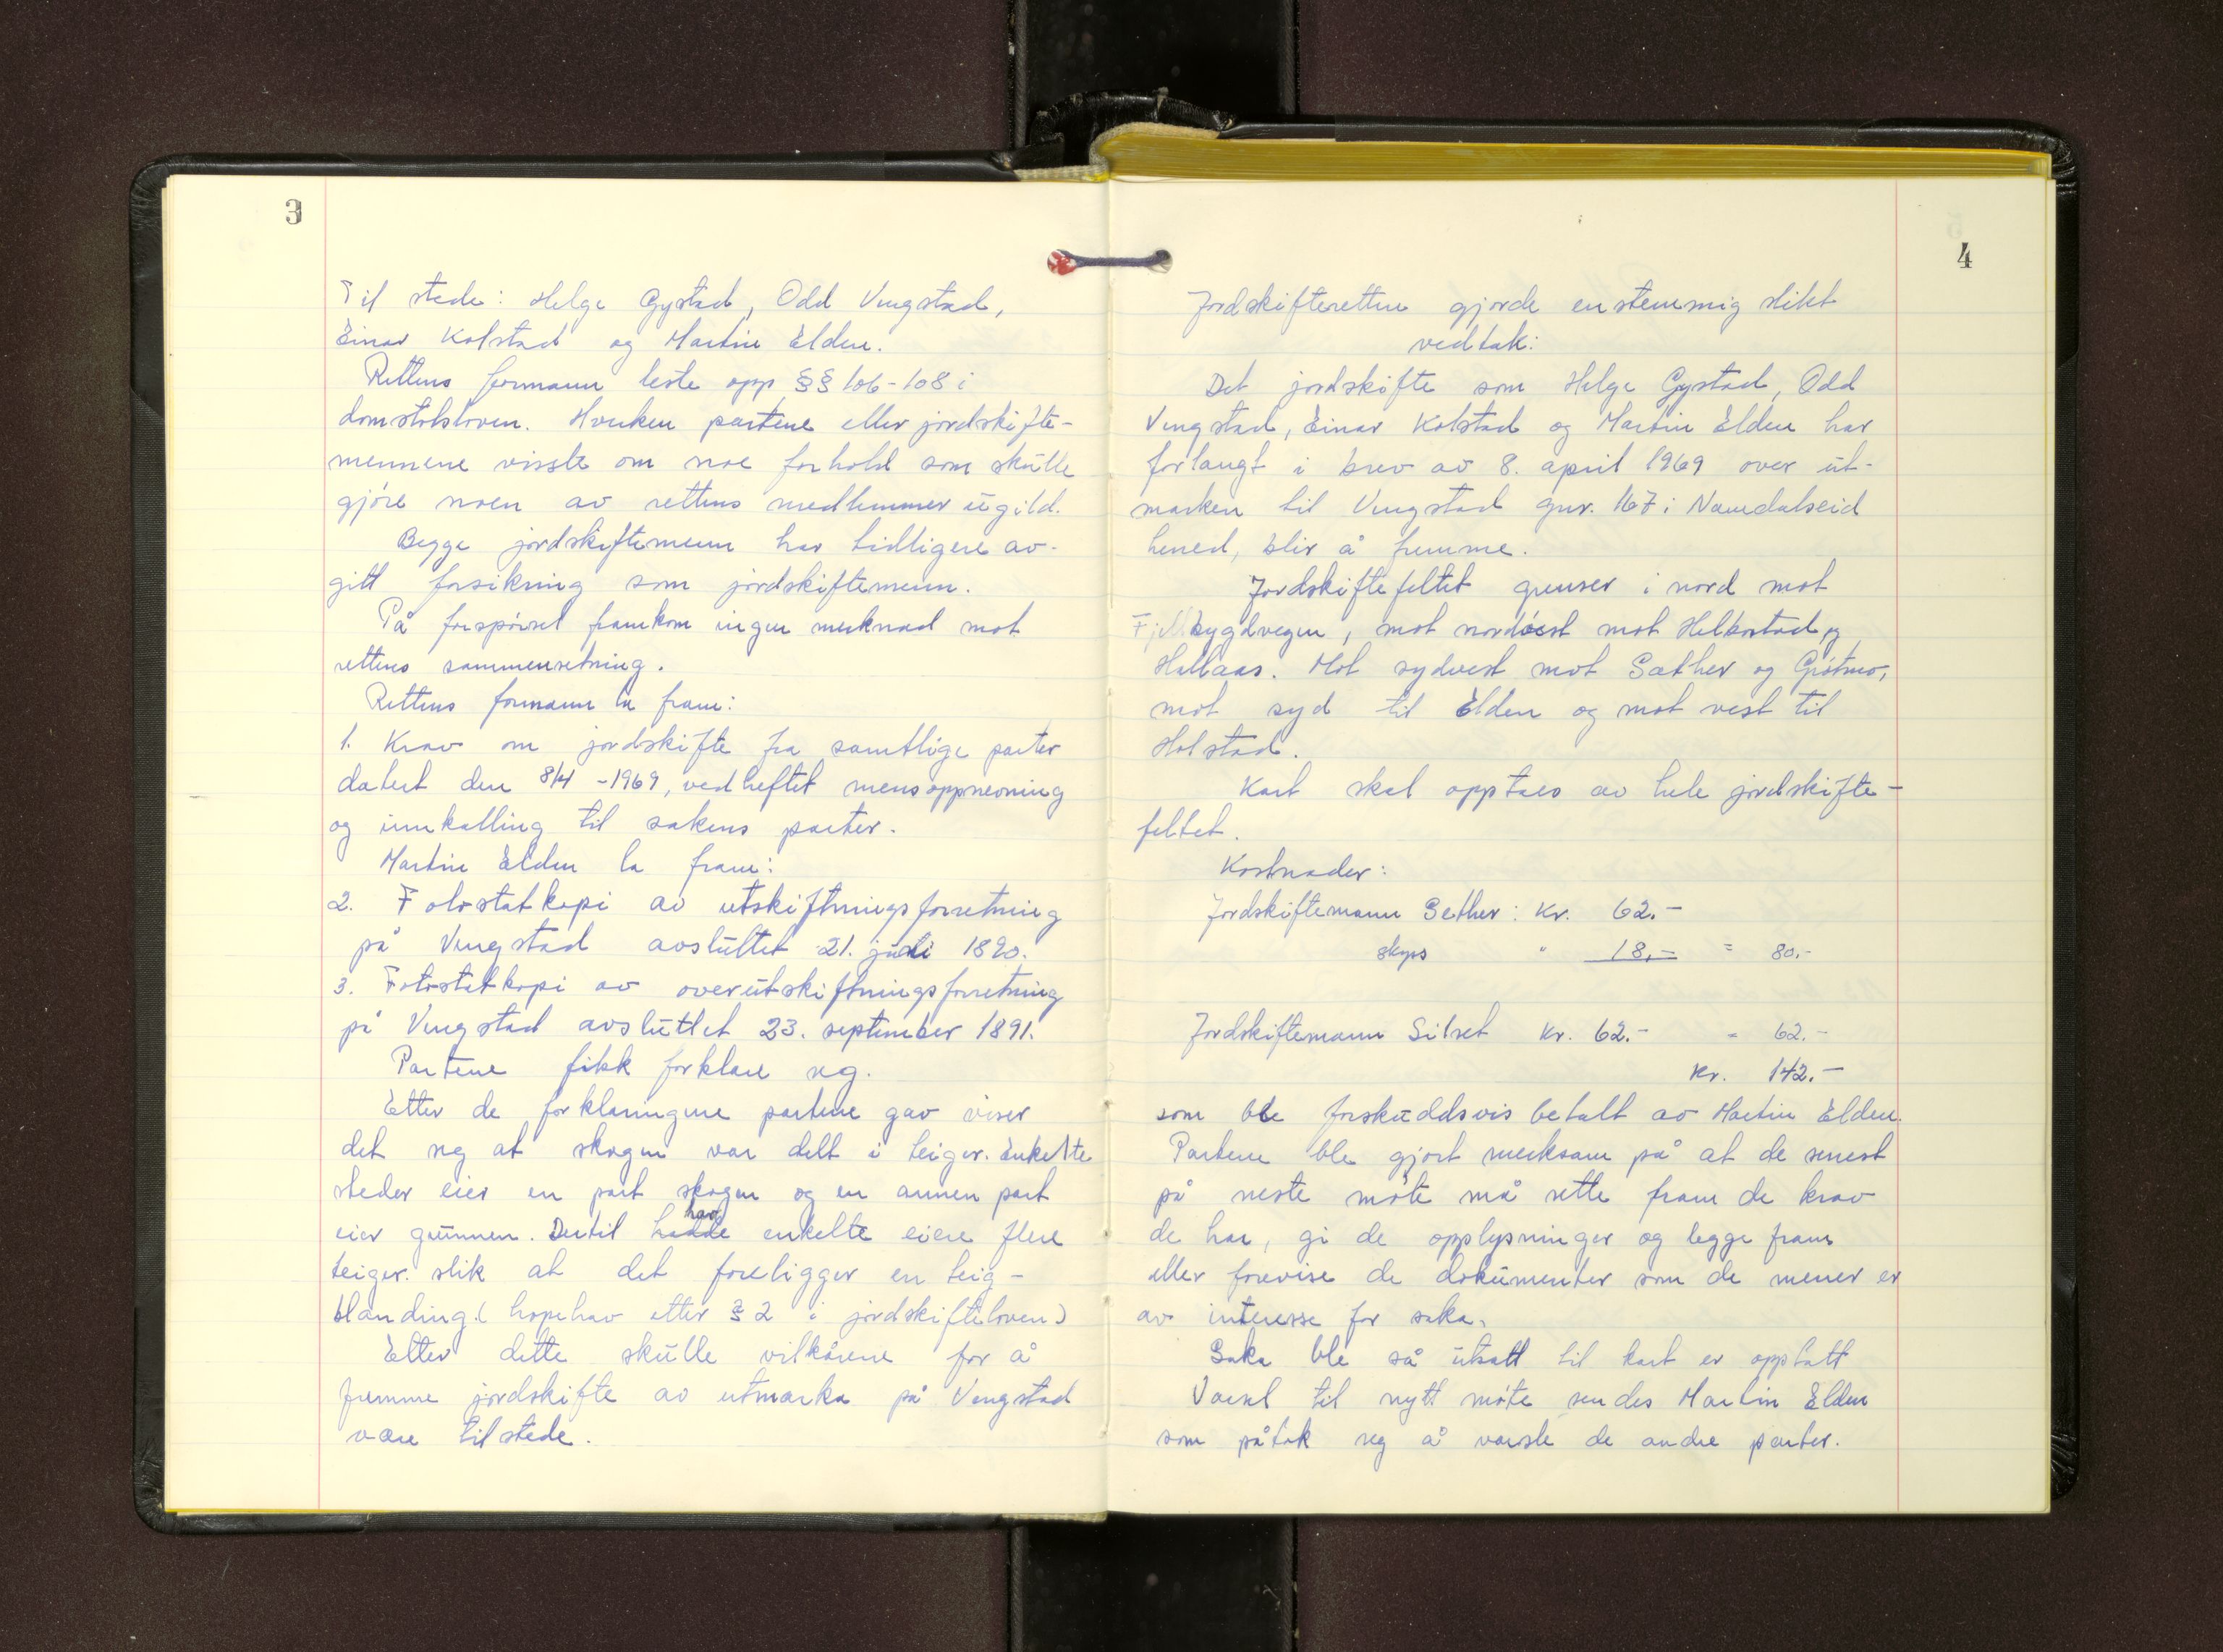 3
Til stede: Helge Gystad, Odd Vengstad,
Einar Kolstad og Martin Elden.
Rettens formann leste opp §§ 106-108 i
domstolsloven. Hverken partene eller jordskifte-
mennene visste om noe forhold som skulle
gjøre noen av rettens medlemmer ugild.
Begge jordskiftemenn har tidligere av-
gitt forsikring som jordskiftemenn.
På forspørsel framkom ingen merknad mot
rettens sammensetning.
Rettens formann la fram:
1. Krav om jordskifte fra samtlige parter
datert den 8/4 -1969, vedheftet mensoppnevning
og innkalling til sakens parter.
Martin Elden la fram:
2. Fotostatkopi av utskiftningsforretning
på Vengstad avsluttet 21. juli 1890.
3. Fotostatkopi av overutskiftningsforretning
på Vengstad avsluttet 23. september 1891.
Partene fikk forklare seg.
Etter de forklaringene partene gav viser
det seg at skogen var delt i teiger. Enkelte
steder eier en part skogen og en annen part
har
eier grunnen. Dertil hadde enkelte eiere flere
teiger. slik at det foreligger en teig-
blanding. (hopehav etter § 2 i jordskifteloven)
Etter dette skulle vilkårene for å
fremme jordskifte av utmarka på Vengstad
være tilstede.
4
Jordskifteretten gjorde enstemmig slikt
vedtak:
Det jordskifte som Helge Gystad, Odd
Vengstad, Einar Kolstad og Martin Elden har
forlangt i brev av 8. april 1969 over ut-
marken til Vengstad gnr. 167 i Namdalseid
herred, blir å fremme.
Jordskiftefeltet grenser i nord mot
Fjellbygdvegen, mot nordøst mot Helbostad og
Hallaas. Mot sydvest mot Sæther og Grøtmo,
mot syd til Elden og mot vest til
Holstad.
Kart skal opptaes av hele jordskifte-
feltet.
Kostnader:
Jordskiftemann Sether: Kr. 62.-
skyss " 18,- = 80.-
Jordskiftemann Silset Kr. 62.- = 62.-
Kr. 142.-
som ble forskuddsvis betalt av Martin Elden.
Partene ble gjort merksam på at de senest
på neste møte må sette fram de krav
de har, gi de opplysninger og legge fram
eller forevise de dokumenter som de mener er
av interesse for saka.
Saka ble så utsatt til kart er opptatt
Varsel til nytt møte sendes Martin Elden
som påtok seg å varsle de andre parter.